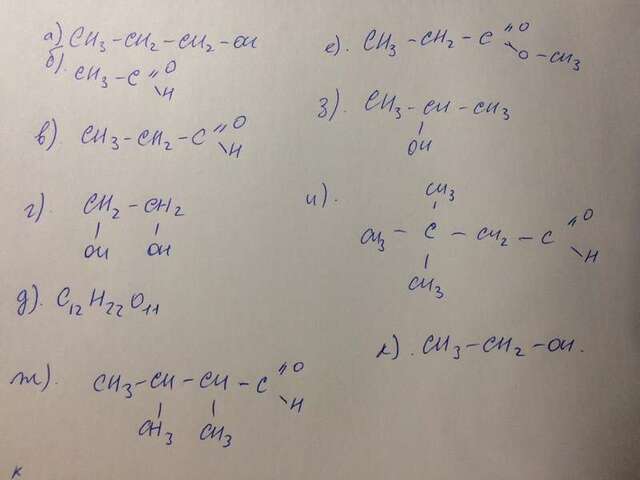 а) CH3-CH2-CH2-OH
б). CH3-C=O
H
в) CH3-CH2-C=O
H
г) CH2-CH2
OH OH
д). C12H22O11
ж). CH3-CH-CH-C=O
H
CH3 CH3
к
е). CH3-CH2-C=O
O-CH3
з). CH3-CH-CH3
OH
и). CH3
CH3-C-CH2-C=O
H
CH3
к). CH3-CH2-OH.